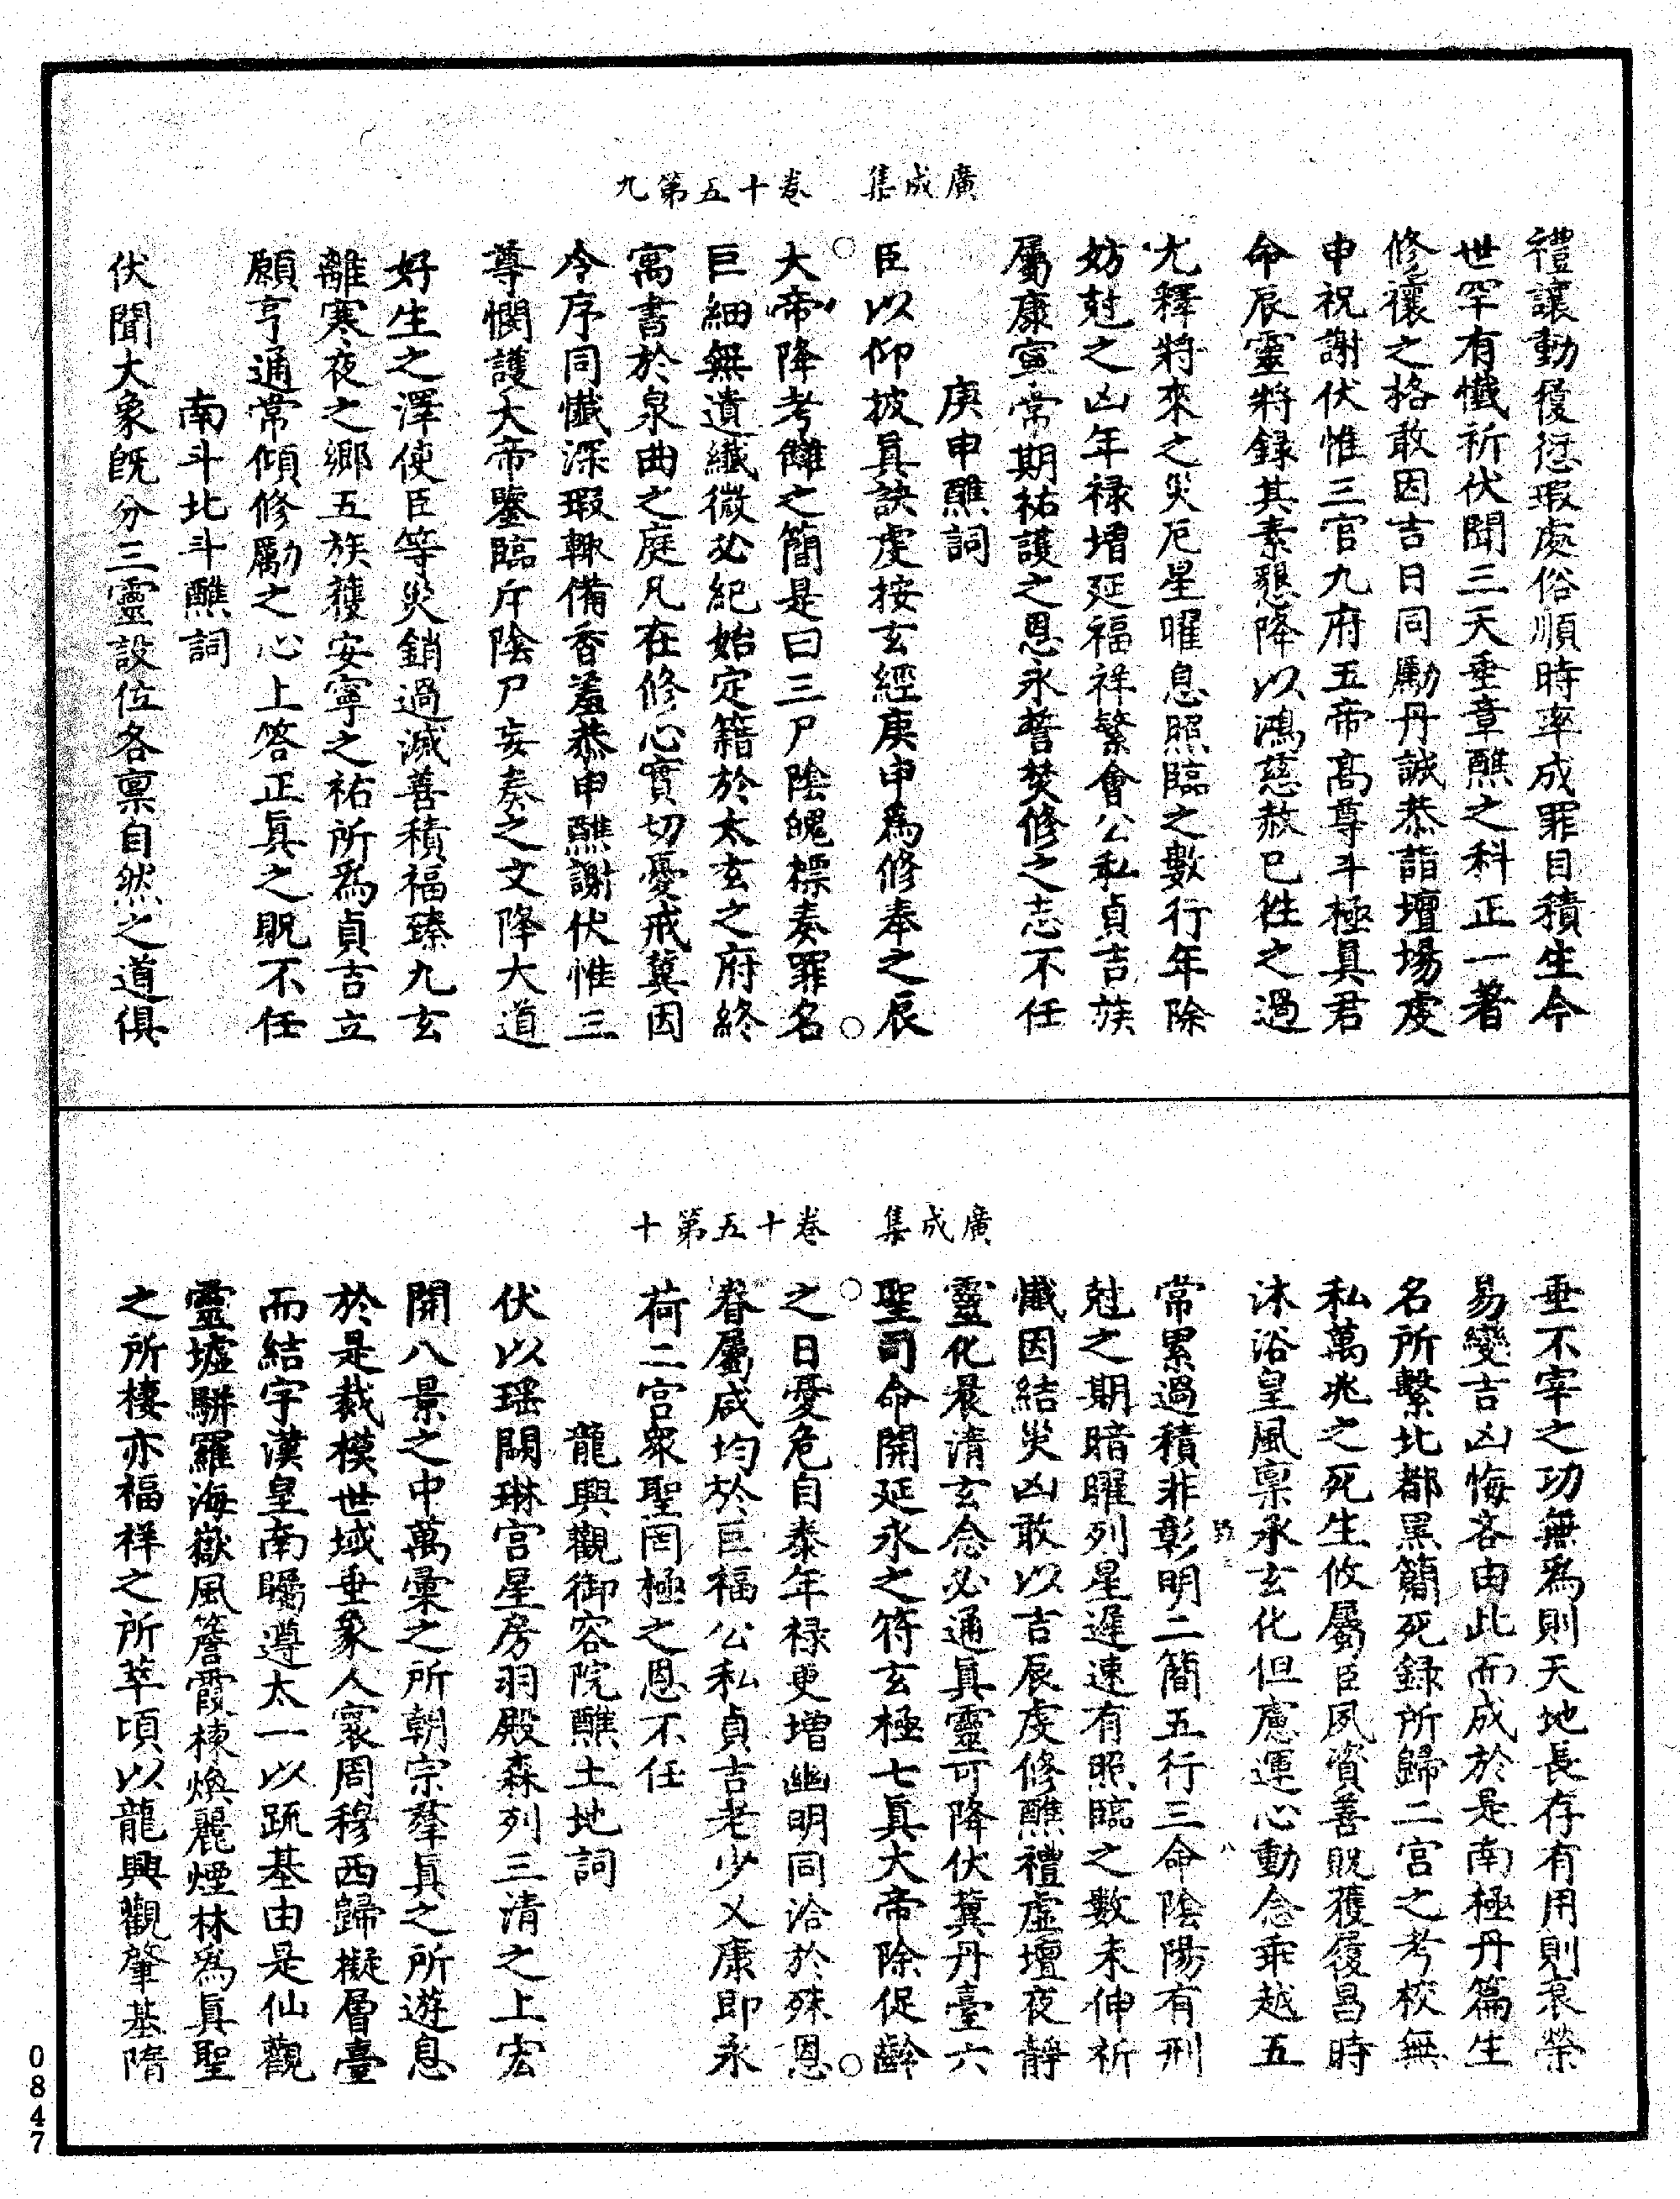 廣成集　卷十五第九
禮讓動獲愆瑕處俗順時率成罪目積生今
世罕有懺祈伏聞三天垂章醮之科正一著
修禳之格敢因吉日同勵丹誠恭詣壇場虔
申祝謝伏惟三官九府五帝高尊斗極真君
命辰靈將錄其素懇降以鴻慈赦已徃之過
尤釋將來之災厄星曜息照臨之數行年除
妨尅之凶年禄增延福祥繁會公私貞吉族
屬康寧常期祐護之恩永誓焚修之志不任
庚申醮詞
臣以仰披真訣虔按玄經庚申為修奉之辰
大帝降考讎之簡是曰三尸陰魄標奏罪名
巨細無遺纖微必紀始定籍於太玄之府終
寓書於泉曲之庭凡在修心實切憂戒冀因
令序同懺深瑕輙備香羞恭申醮謝伏惟三
尊憫護大帝鑒臨斥陰尸妄奏之文降大道
好生之澤使臣等災銷過滅善積福臻九玄
離寒夜之鄉五族獲安寧之祐所為貞吉立
願亨通常傾修勵之心上答正真之貺不任
南斗北斗醮詞
伏聞大象旣分三靈設位各禀自然之道俱
廣成集　卷十五第十
垂不宰之功無為則天地長存有用則衰榮
易變吉凶悔吝由此而成於是南極丹篇生
名所繫北都黑簡死録所歸二宮之考校無
私萬兆之死生攸屬臣夙資善貺獲履昌時
沐浴皇風禀承玄化但慮運心動念乖越五
常累過積非彰明二簡五行三命陰陽有刑
尅之期暗曜列星遲速有照臨之數未伸祈
懺因結災凶敢以吉辰虔修醮禮虛壇夜靜
靈化晨清玄念必通真靈可降伏冀丹臺六
聖司命開延永之符玄極七真大帝除促齡
之日憂危自泰年禄更增幽明同洽於殊恩
眷屬咸均於巨福公私貞吉老少乂康即永
荷二宮衆聖罔極之恩不任
龍興觀御容院醮土地詞
伏以瑶闕琳宮星房羽殿森列三清之上宏
開八景之中萬彙之所朝宗羣真之所遊息
於是裁模世域垂象人寰周穆西歸擬層臺
而結宇漢皇南矚遵太一以疏基由是仙觀
靈墟駢羅海嶽風簷霞棟煥麗煙林為真聖
之所棲亦福祥之所萃頃以龍興觀肇基隋
0847